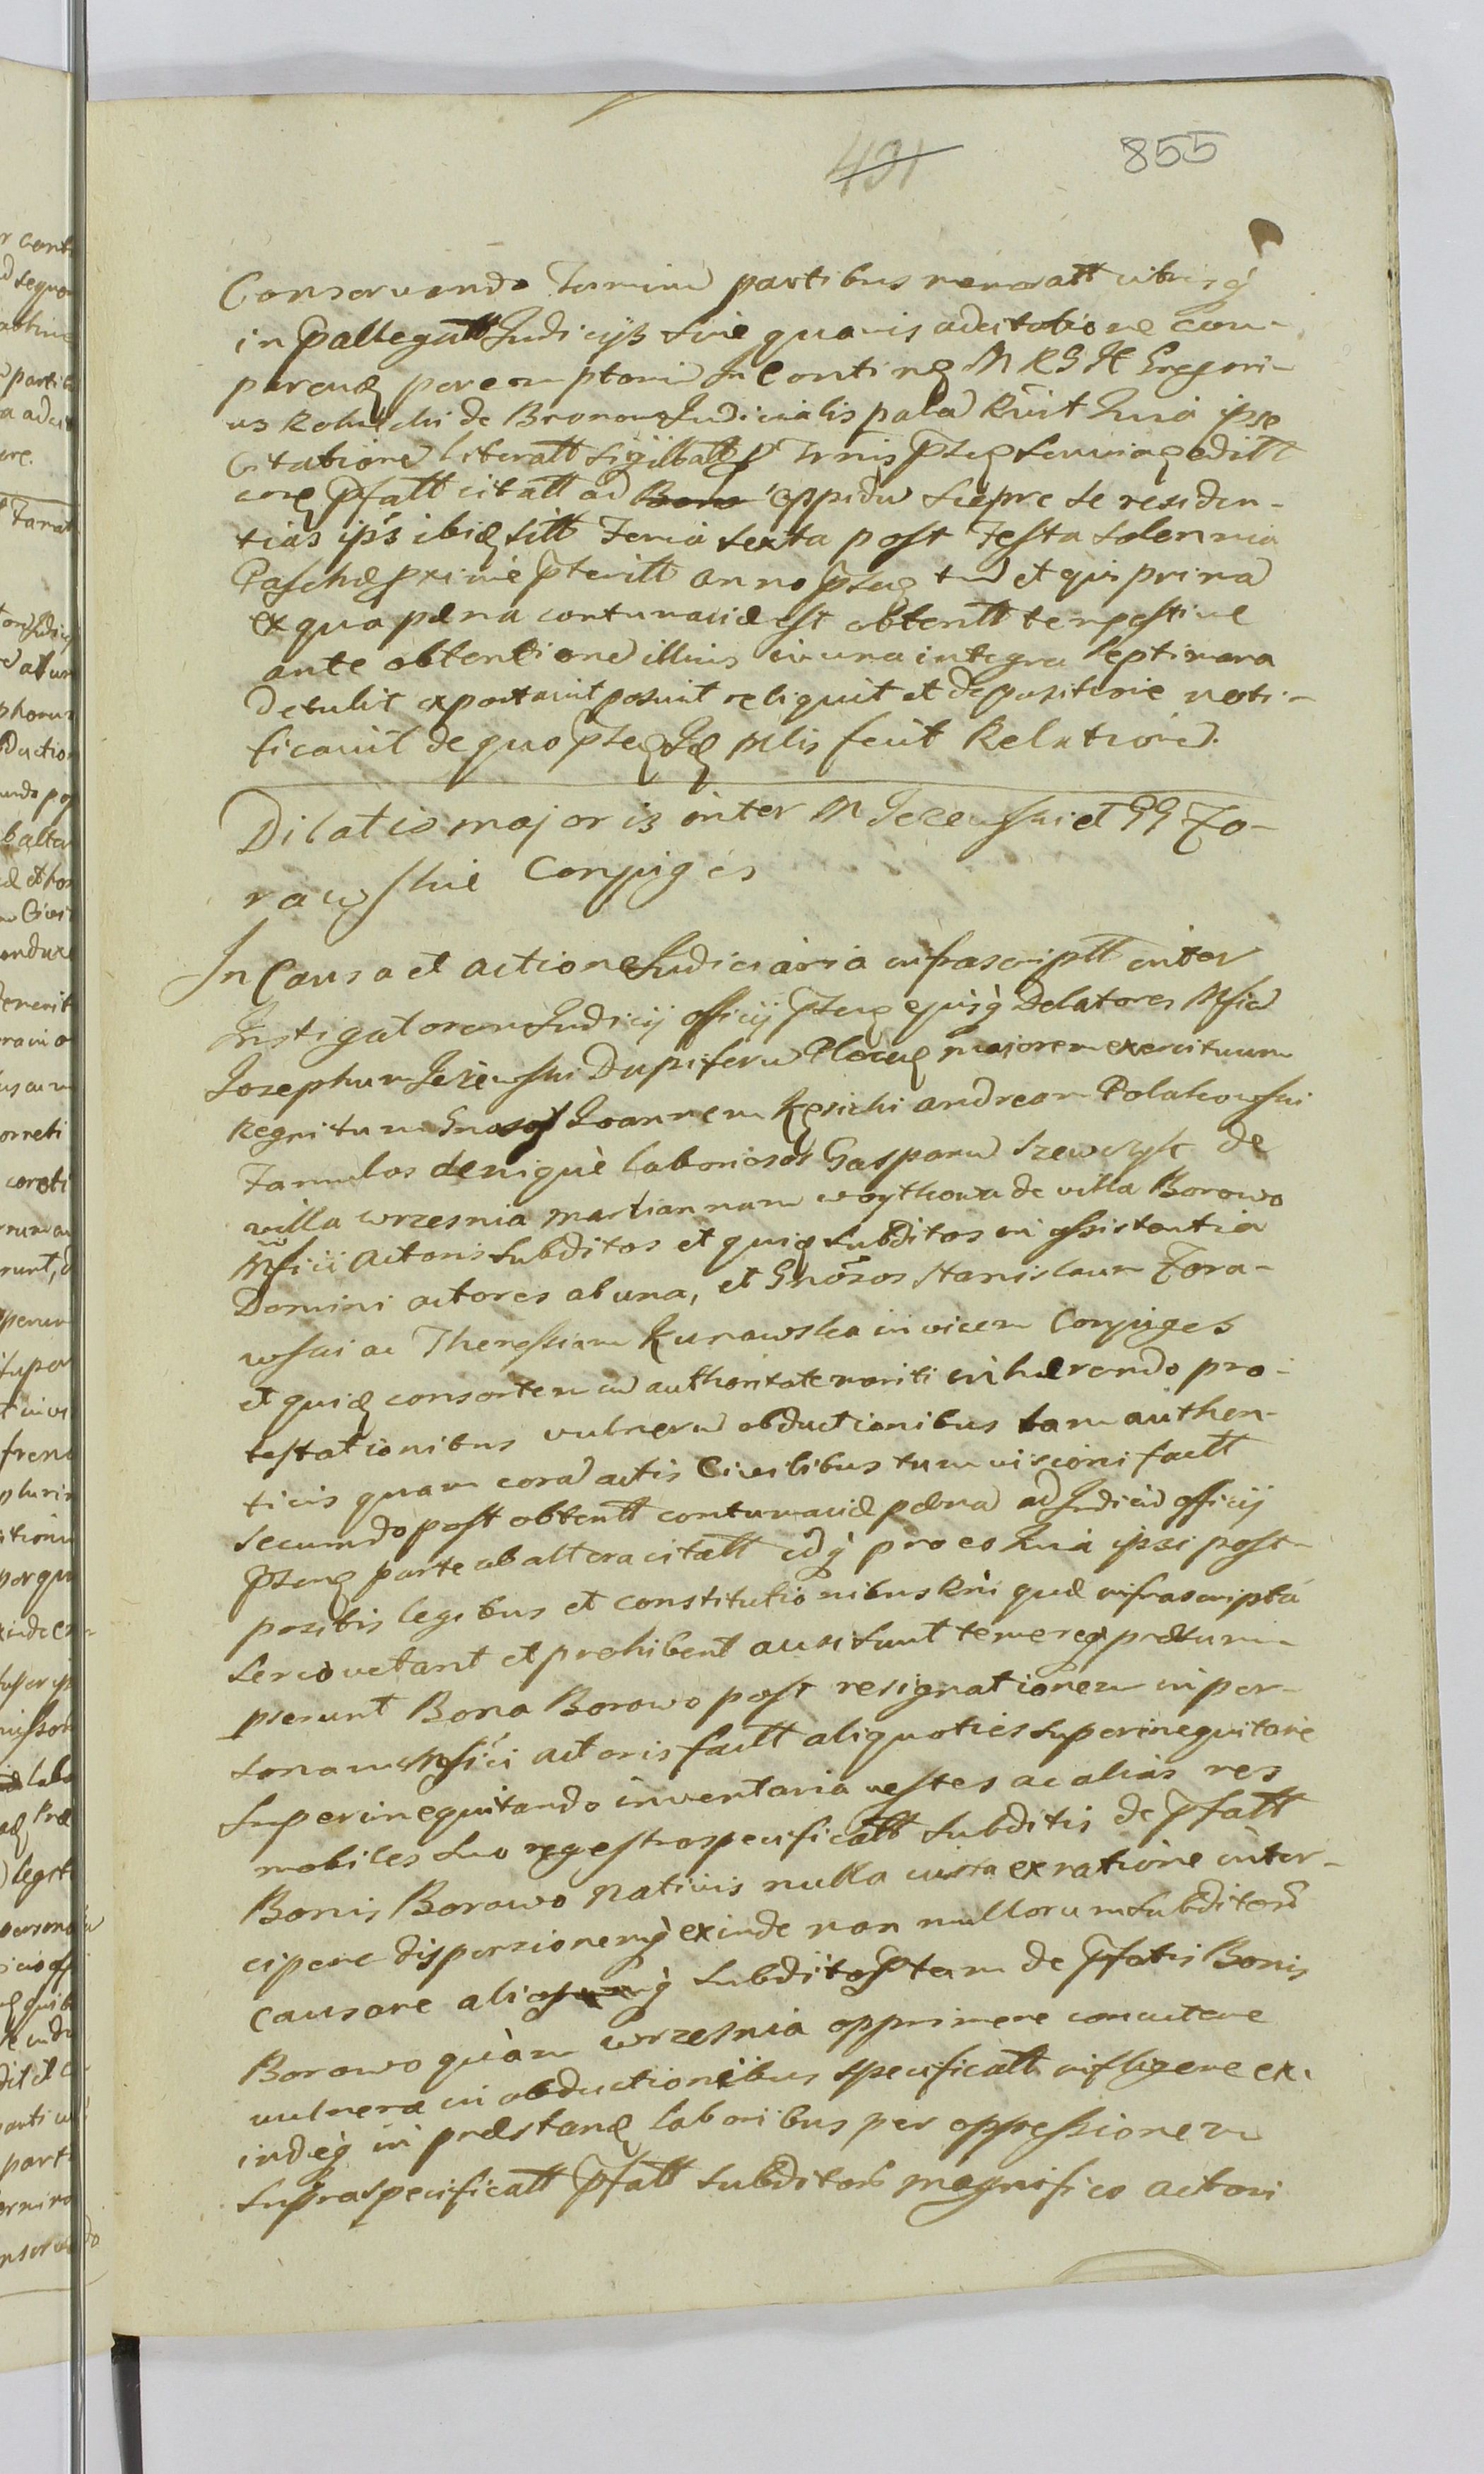 431 855
Conservando Terminũ partibus memoratt utrisq̀
in pallegatt Judicijs sine quavis adcitatione com-
parendȩ peremptoriũ In Contin MRGH Gregori-
us de Bronowo Judicialis palaã Rūit Quia ipse
Citationẽ literatt sigillatt Trnis
corȩ pfatt citatt ad Oppidũ Sierpc se residen-
tias ips ibiȩ sitt Feria sexta post Festa Solennia
Paschæ pxime pteritt anno et qui primã
ex qua pæna contumaciæ est obtentt tempestive
ante obtentionẽ illius in una integra Septimana
Detulit exportavit posuit reliquit et depositorie noti-
ficavit de quo fecit Relationẽ.
Dilatio majoris inter M Jezewski et GG Zo-
rawskie Conjuges
In Causa et actione Judiciaria infrascriptt inter
Instigatorem Judicij officij ejusq̀ Delatores Mficũ
Josephum Jezewski Dapiferũ Plocen majorem exercituum
Regni tum Gnosos Joannem Kęsicki andream Polakowski
Famulos denique laboriosos Gasparũ Szewczyk de
villa wrzesnia martiannam woythowa de villa Borowo
Mficii Actoris subditos et quiȩ subditos in assistentia
Domini actores ab una, et Gnosos Stanislaum Zora-
wski ac Theressiam Kunawska invicem Conjuges
et quiȩ consortem cũ authoritate mariti inhærendo pro-
testationibus vulnerũ obductionibus tam authen-
ticis quam corã actis Civilibus tum visioni factt
secundo post obtentt contumaciæ pænã ad Judiciũ officij
parte ab altera citatt idq̀ pro eo Quia ipsi post-
positis legibus et constitutionibus Rni quæ infrascripta
serio vetant et prohibent ausi sunt temereq̀ præsum-
pserunt Bona Borowo post resignationem in per-
sonam Mfici actoris factt aliquoties superinequitare
superinequitando inventaria vestes ac alias res
mobiles suo regestro specificatt subditis de pfatt
Bonis Borowo nativis nulla iusta ex ratione inter-
cipere dispersionemq̀ exinde non nullorum subditorũ
causare aliosq̀ subditos tam de pfatis Bonis
Borowo quàm wrzesnia opprimere concutere
vulnera in obductionibus specificatt infligere ex-
indeq̀ in præstanȩ laboribus per oppressionem
supraspecificatt pfatt subditorũ magnifico actori